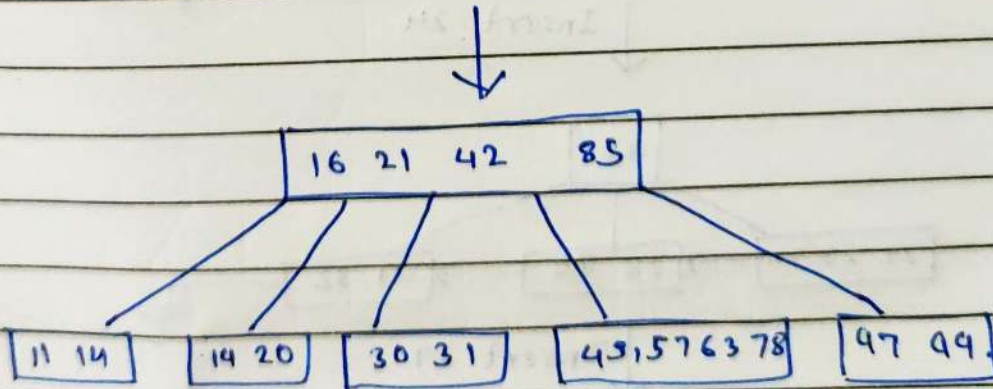 16 21 42 85
11 14 19 20 30 31 45,57 63 78 97 99